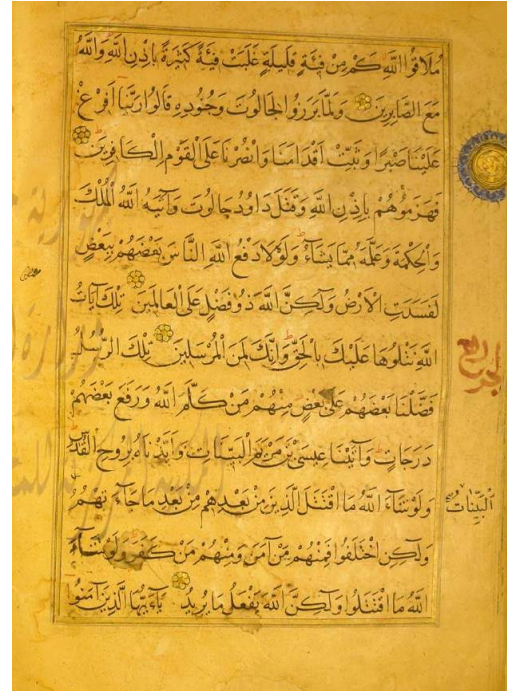 مُلَاقُوا اللَّهِ كَمْ مِنْ فِئَةٍ قَلِيلَةٍ غَلَبَتْ فِئَةً كَثِيرَةً بِإِذْنِ اللَّهِ وَاللَّهُ
مَعَ الصَّابِرِينَ وَلَمَّا بَرَزُوا لِجَالُوتَ وَجُنُودِهِ قَالُوا رَبَّنَا أَفْرِغْ
عَلَيْنَا صَبْرًا وَثَبِّتْ أَقْدَامَنَا وَانْصُرْنَا عَلَى الْقَوْمِ الْكَافِرِينَ
فَهَزَمُوهُمْ بِإِذْنِ اللَّهِ وَقَتَلَ دَاوُدُ جَالُوتَ وَآتَيهُ اللَّهُ الْمُلْكَ
وَالْحِكْمَةَ وَعَلَّمَهُ مِمَّا يَشَاءُ وَلَوْلَا دَفْعُ اللَّهِ النَّاسَ بَعْضَهُمْ بِبَعْضٍ
لَفَسَدَتِ الْأَرْضُ وَلَكِنَّ اللَّهَ ذُو فَضْلٍ عَلَى الْعَالَمِينَ تِلْكَ آيَاتُ
اللَّهِ نَتْلُوهَا عَلَيْكَ بِالْحَقِّ وَإِنَّكَ لَمِنَ الْمُرْسَلِينَ تِلْكَ الرُّسُلُ
فَضَّلْنَا بَعْضَهُمْ عَلَى بَعْضٍ مِنْهُمْ مَنْ كَلَّمَ اللَّهُ وَرَفَعَ بَعْضَهُمْ
دَرَجَاتٍ وَآتَيْنَا عِيسَى بْنَ مَرْيَمَ الْبَيِّنَاتِ وَأَيَّدْنَاهُ بِرُوحِ الْقُدُسِ
وَلَوْ شَاءَ اللَّهُ مَا اقْتَتَلَ الَّذِينَ مِنْ بَعْدِهِمْ مِنْ بَعْدِ مَا جَاءَتْهُمُ
الْبَيِّنَاتُ
وَلَكِنِ اخْتَلَفُوا فَمِنْهُمْ مَنْ آمَنَ وَمِنْهُمْ مَنْ كَفَرَ وَلَوْ شَاءَ
اللَّهُ مَا اقْتَتَلُوا وَلَكِنَّ اللَّهَ يَفْعَلُ مَا يُرِيدُ يَاءَيُّهَا الَّذِينَ آمَنُوا